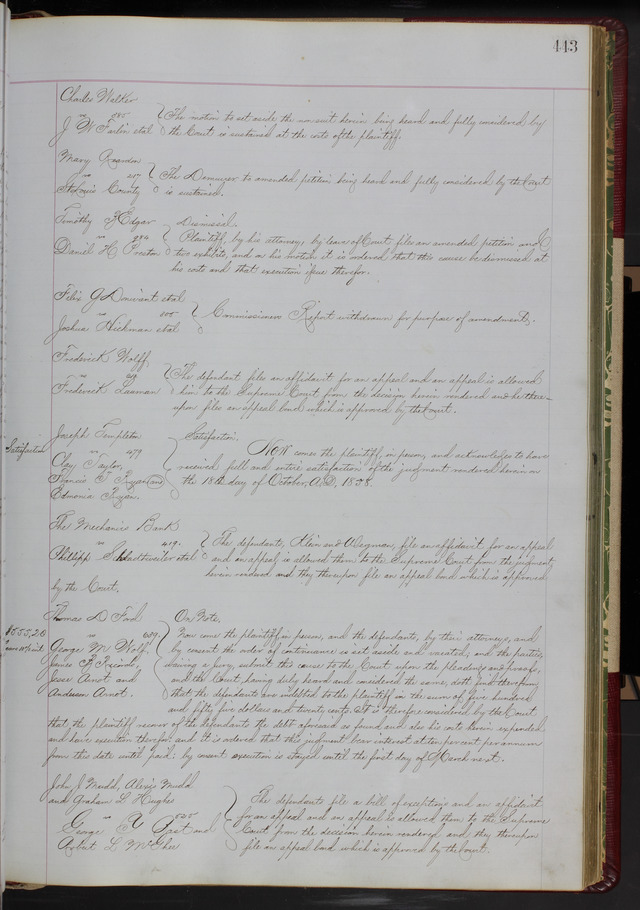 443
Charles Walker
vs 885
J W Tarlin et al
The motion to set aside the non suit herein being heard and fully considered by
the Court is sustained at the costs of the plaintiff.
Mary Reardon
vs 217
St Louis County
The Demurrer to amended petition being heard and fully considered by the Court
is sustained.
Timothy Edgar
vs 284
Daniel H Preston
Dismissal.
Plaintiff, by his attorney, by leave of Court files an amended petition and
two exhibits, and on his motion it is ordered that this cause be dismissed at
his costs and that execution issue therefor.
Felix G et al
vs
Joshua Hickman et al
Commissioners Report withdrawn for purpose of amendments.
Frederick Wolff
vs
Frederick Laaman
The defendant files an affidavit for an appeal and an appeal is allowed
him to the Supreme Court from the decision herein rendered and he there-
upon files an appeal bond which is approved by the Court.
Satisfaction
Joseph Templeton
vs 479
Clay Taylor,
Francis T Ryan and
Edmonia Ryan.
Satisfaction.
Now comes the plaintiff, in person, and acknowledges to have
received full and entire satisfaction of the judgment rendered herein on
the 18th day of October, A.D, 1858.
The Mechanics Bank
vs 419.
Phillipp et al
The defendants, Klein and Wegman, file an affidavit for an appeal
and an appeal is allowed them to the Supreme Court from the judgment
herein rendered and they thereupon file an appeal bond which is approved
by the Court.
$555,20
Thomas D Ford
vs 659.
George M Wolf,
James
Jesse Arnot and
Anderson Arnot.
On Note.
Now come the plaintiff in person, and the defendants, by their attorneys, and
by consent the order of continuance is set aside and vacated, and the parties,
waiving a jury, submit this cause to the Court upon the pleadings and proofs,
and the Court, having duly heard and considered the same, doth find therefrom
that the defendants are indebted to the plaintiff in the sum of five hundred
and fifty five dollars and twenty cents. It is therefore considered by the Court
that the plaintiff recover of the defendants the debt aforesaid so found and also his costs herein expended
and have execution therefor, and it is ordered that this judgment bear interest at ten per cent per annum
from this date until paid: by consent execution is stayed until the first day of March next.
John J Mudd, Alexis Mudd
and Graham L Hughes
vs
George and
Robert L McGhee
The defendants file a bill of exceptions and an affidavit
for an appeal and an appeal is allowed them to the Supreme
Court from the decision herein rendered and they thereupon
file an appeal bond which is approved by the Court.